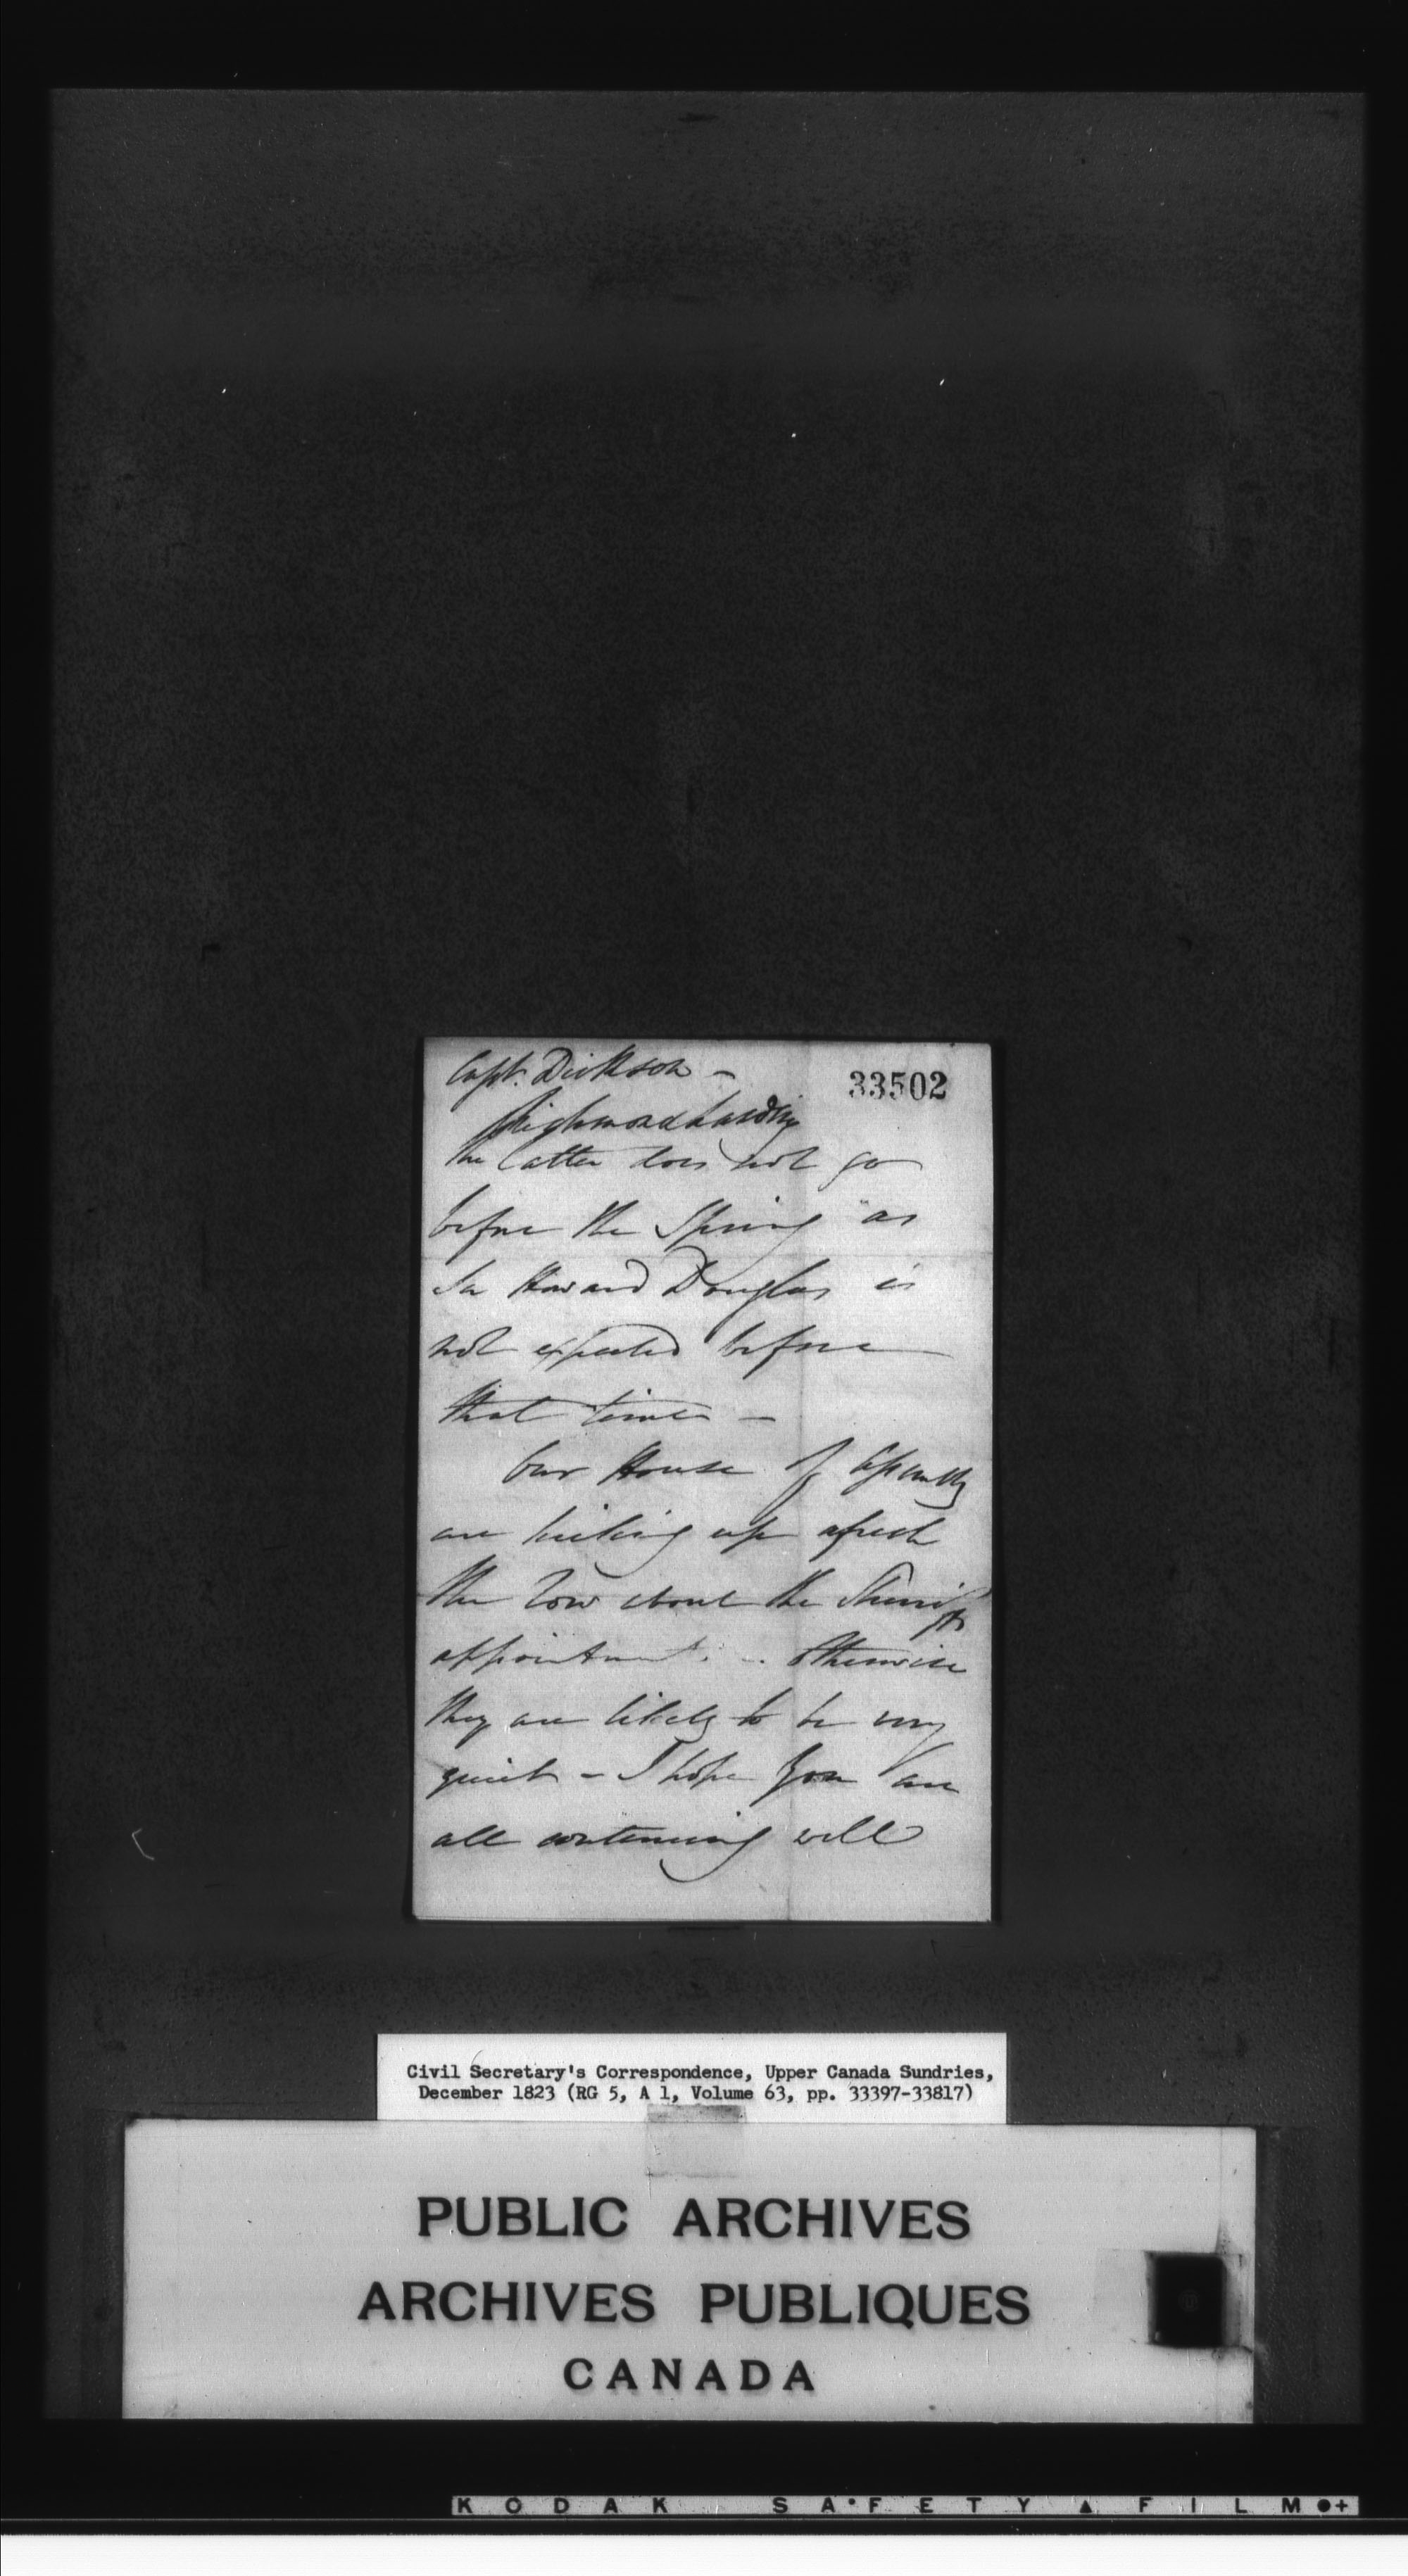 Capt. Dickson –
33502
Richmond Landing
the latter does not go
before the Spring as
Sir Howard Douglas is
not expected before
that time –
Our House of Assembly
are kicking up afresh
the row about the Sheriffs
appointment. .. Otherwise
they are likely to be very
quiet – I hope you are
all continuing well
Civil Secretary's Correspondence, Upper Canada Sundries,
December 1823 (RG 5, A 1, Volume 63, pp. 33397-33817)
PUBLIC ARCHIVES
ARCHIVES PUBLIQUES
CANADA
KODAK SA•FETY ▲ FILM ●+